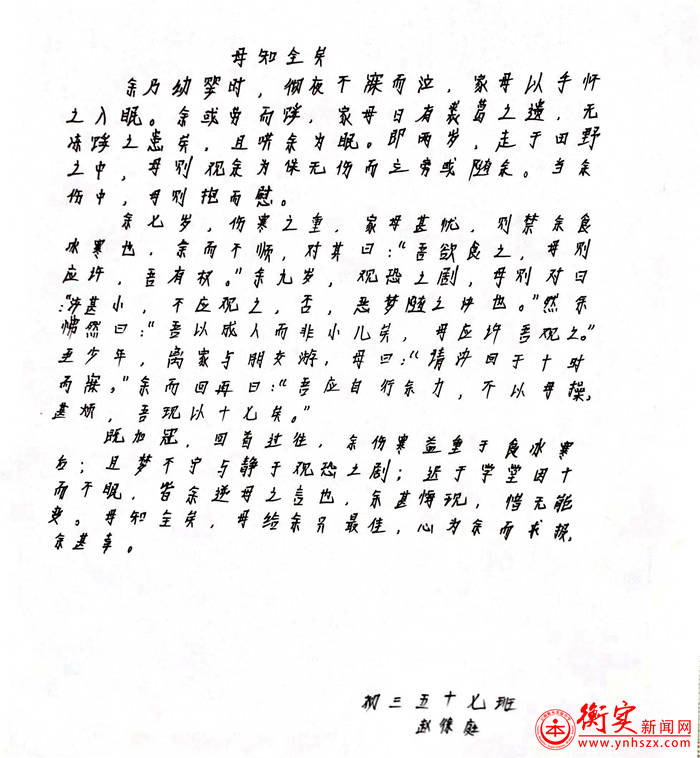 母知全矣
余乃幼婴时，彻夜不寐而泣，家母以手怀
之入眠。余或劳而跻，家母日有裘葛之遗，无
冻跻之患矣，且哄余为眠。即两岁，走于田野
之中，母则观余为保无伤而立旁或随余。当余
伤中，母则抱而慰。
余七岁，伤寒之重，家母甚忧，则禁余食
冰寒也，余而不顺，对其曰：“吾欲食之，母则
应许，吾有权。”余九岁，观恐之剧，母则对曰
：“汝甚小，不应观之，否，恶梦随之汝也。”然余
怫然曰：“吾以成人而非小儿矣，母应许吾观之。”
至少年，离家与朋友游，母曰：“请汝回于十时
而寐。”余而回再曰：“吾应自行余力，不以母操，
甚烦，吾现以十七矣。”
既加冠，回首过往，余伤寒益重于食冰寒
与；且梦不宁与静于观恐之剧；迟于学堂因十
而不眠，皆余逆母之言也，余甚悔现，惜无能
变。母知全矣，母给余只最佳，心为余而求报，
余甚幸。
初三五十七班
赵像庭
衡实新闻网
www.ynhszx.com